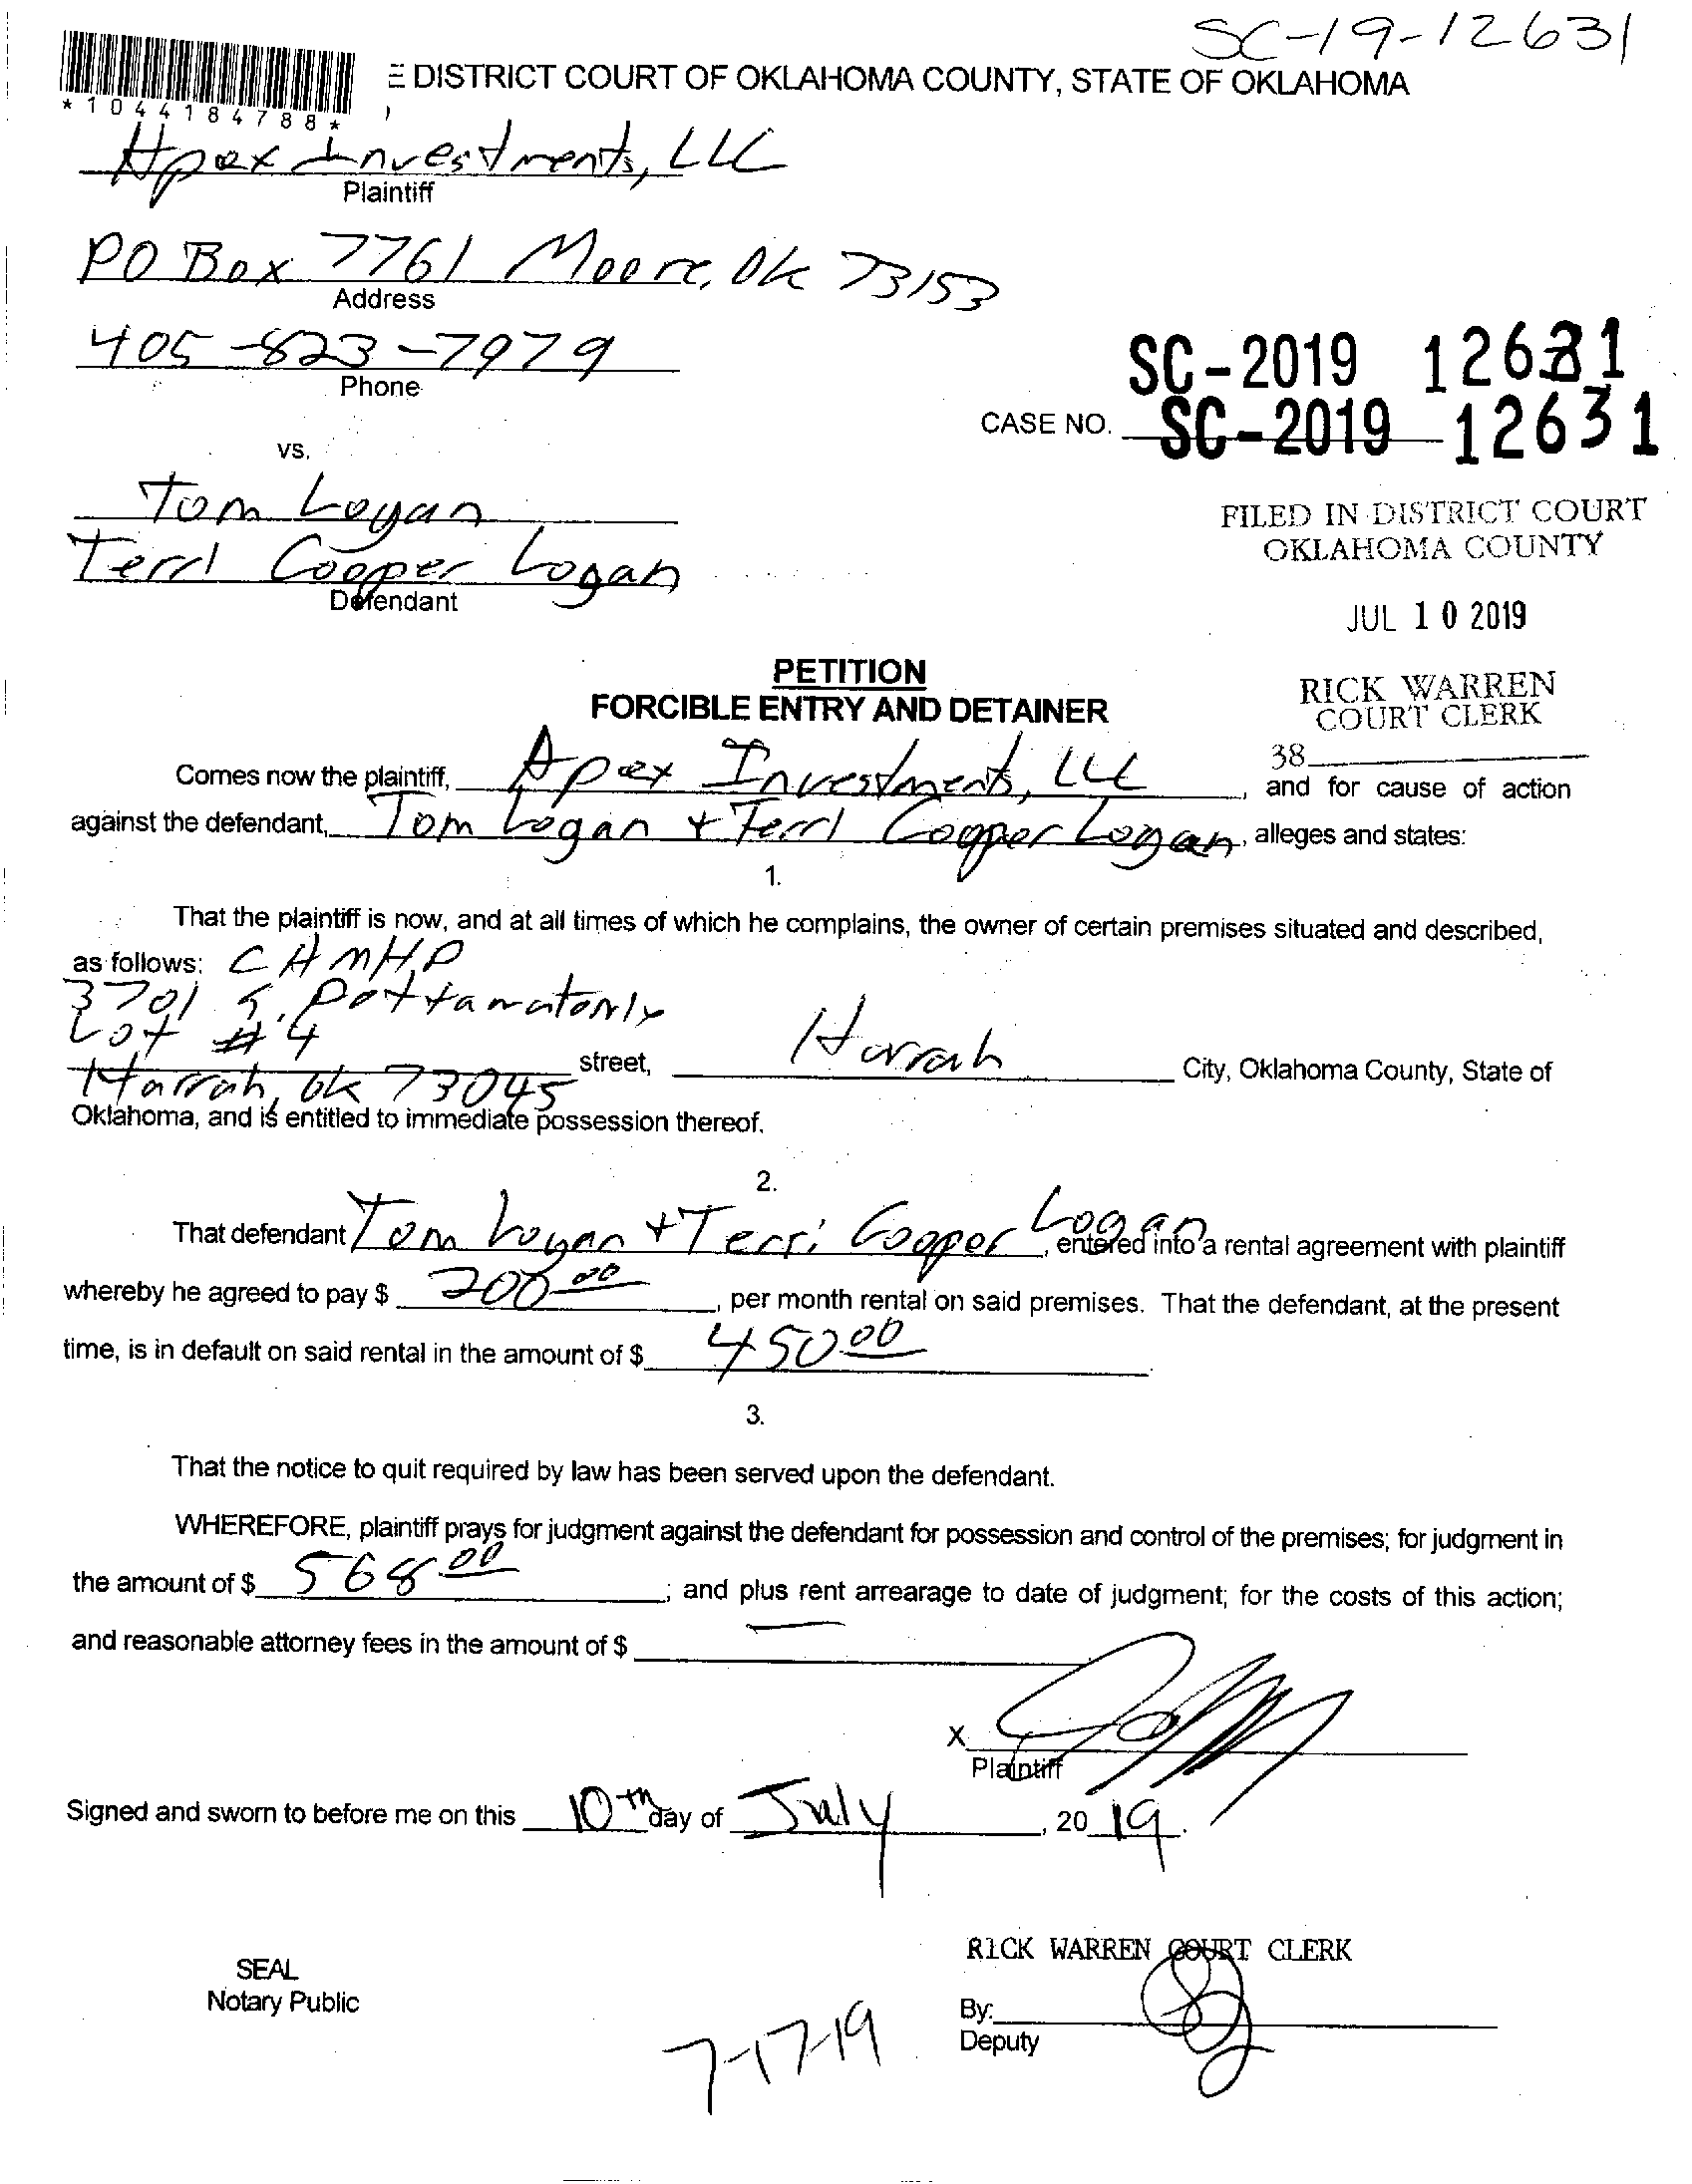 SC-19-12631
E DISTRICT COURT OF OKLAHOMA COUNTY, STATE OF OKLAHOMA
*1044184788*
Apex Investments, LLC
Plaintiff
PO Box 7761 Moore, Ok 73153
Address
405-823-7979
Phone
SC-2019 12631
CASE NO. SC-2019-12631
vs.
Tom Logan
Terri Cooper Logan
Defendant
FILED IN DISTRICT COURT
OKLAHOMA COUNTY
JUL 10 2019
RICK WARREN
COURT CLERK
38
PETITION
FORCIBLE ENTRY AND DETAINER
Comes now the plaintiff, Apex Investments, LLC, and for cause of action
against the defendant, Tom Logan + Terri Cooper Logan, alleges and states:
1.
That the plaintiff is now, and at all times of which he complains, the owner of certain premises situated and described,
as follows: CHMHP
3701 S. Pottamatonly
Lot #4
street, Harrah City, Oklahoma County, State of
Harrah, Ok 73045
Oklahoma, and is entitled to immediate possession thereof.
2.
That defendant Tom Logan + Terri Cooper Logan, entered into a rental agreement with plaintiff
whereby he agreed to pay $ 200.00, per month rental on said premises. That the defendant, at the present
time, is in default on said rental in the amount of $ 450.00
3.
That the notice to quit required by law has been served upon the defendant.
WHEREFORE, plaintiff prays for judgment against the defendant for possession and control of the premises; for judgment in
the amount of $ 568.00; and plus rent arrearage to date of judgment; for the costs of this action;
and reasonable attorney fees in the amount of $ —
X
Plaintiff
Signed and sworn to before me on this 10th day of July, 2019.
RICK WARREN COURT CLERK
SEAL
Notary Public
By:
Deputy
7-17-19